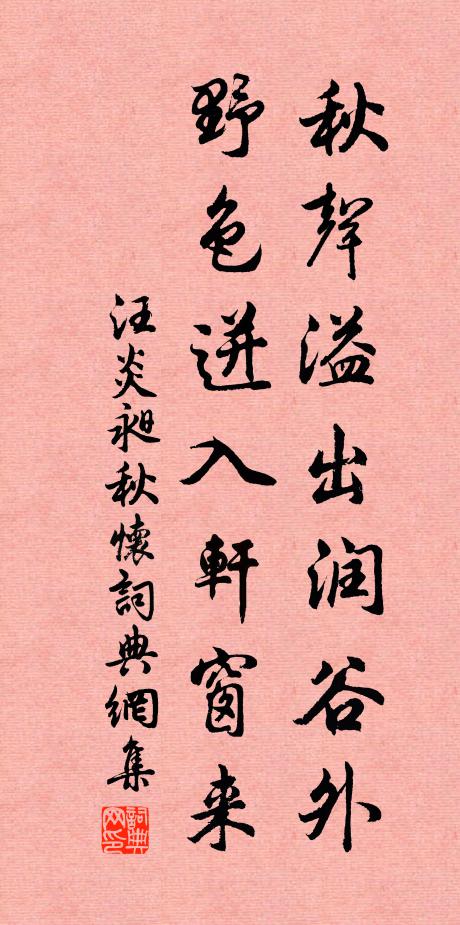 秋聲溢出润谷外
野色迸入軒窗来
汪炎昶秋懷詞典網集
詞典网印